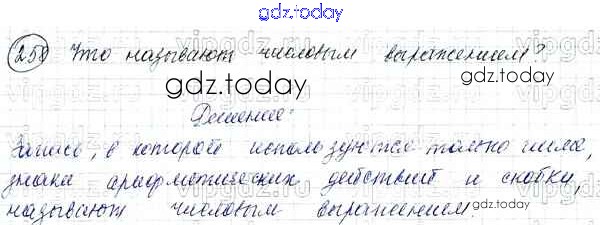 gdz.today
258 Что называют числовым выражением?
gdz.today
gdz.today
Решение:
Запись, в которой используются только числа,
знаки арифметических действий и скобки,
называют числовым выражением.
gdz.today